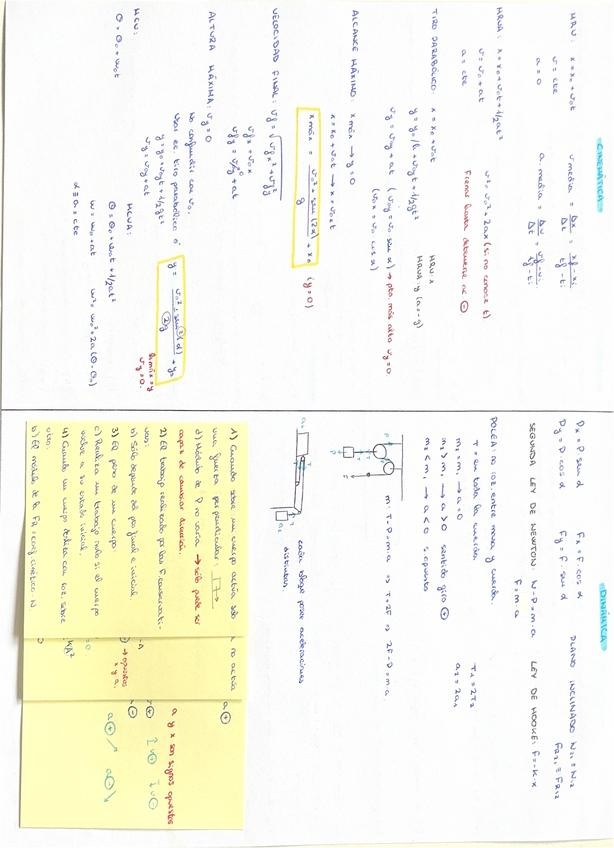 CINEMÁTICA
MRU: x = x₀ + v₀t
v = cte
a = 0
v media = Δx/Δt = xf - xi / tf - ti
a media = Δv/Δt = vf - vi / tf - ti
MRUA: x = x₀ + v₀t + 1/2at²
v = v₀ + at
a = cte
v² = v₀² + 2ax (si no conoce t)
Frenar hasta detenerse ac ⊖
TIRO PARABÓLICO: x = x₀ + v₀t
MRU: x
y = y₀/h + v₀yt + 1/2gt²
MRUA: y (a = -g)
vy = v₀y + at (v₀y = v₀ sin α) → pto. más alto vy = 0
(v₀x = v₀ cos α)
ALCANCE MÁXIMO: x máx → y = 0
x = x₀ + v₀t → x = v₀xt
x máx = v₀² · sin(2α) / g + x₀ (y = 0)
VELOCIDAD FINAL: vf = √vfx² + vfy²
vfx = v₀x
vfy = v₀y + gt
ALTURA MÁXIMA: vy = 0
No confundir con v₀.
Usar ec tiro parabólico ó
y = y₀ + v₀yt + 1/2gt²
vy = v₀y + at
y = v₀² · sen²(α) / 2g + y₀
h máx = y
vy = 0.
MCU:
θ = θ₀ + ω₀t
MCUA:
θ = θ₀ + ω₀t + 1/2αt²
ω = ω₀ + αt
ω² = ω₀² + 2α(θ - θ₀)
DINÁMICA
Px = P sin α
Py = P cos α
Fx = F cos α
Fy = F sin α
PLANO INCLINADO
SEGUNDA LEY DE NEWTON: N - P = m·a
F = m·a
LEY DE HOOKE: F = -K·x
POLEA: no roz. entre masa y cuerda.
T = en toda la cuerda.
m₂ = m₁ → a = 0
m₂ > m₁ → a > 0 sentido giro ⊕
m₂ < m₁ → a < 0 s. opuesto
T₁ = 2T₂
a₂ = 2a₁
m: T - P = m·a ⇒ T = 2F ⇒ 2F - P = m·a
cada bloque posee aceleraciones
distintas.
1) Cuando sobre un cuerpo actúa solo
una fuerza perpendicular:
d) Módulo de P no varía → sólo puede ser
capaz de cambiar dirección.
2) El trabajo realizado por las F conservati-
vas:
b) Sólo depende del pto final e inicial.
3) El peso de un cuerpo
c) Realiza un trabajo nulo si el cuerpo
vuelve a su estado inicial.
4) Cuando un cuerpo desliza con roz. sobre
otro:
b) El módulo de la FR = coef cinético · N
a y x son signos opuestos